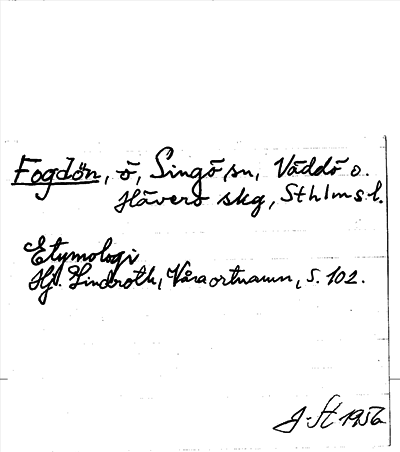 Fogdön, ö, Singö sn, Väddö o.
Häverö skg, Sthlms l.
Etymologi
Hj. Lindroth, Våra ortnamn, s. 102.
J. St 1956